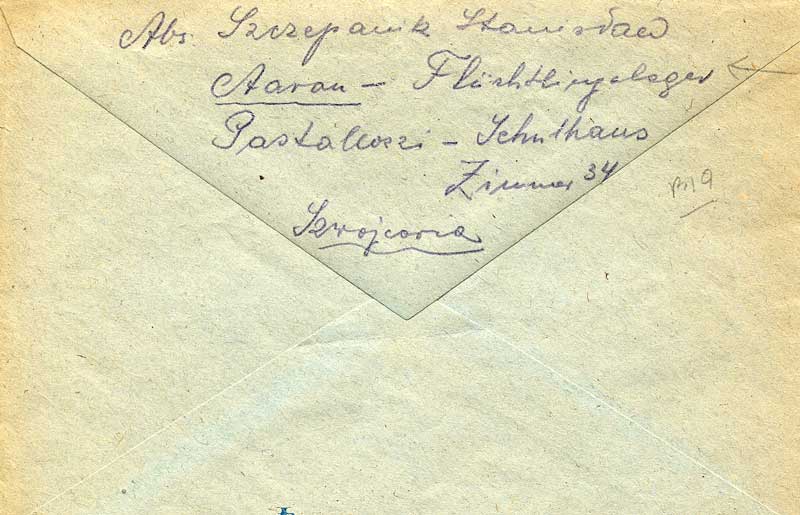 Abs. Szczepanik Stanisław
Aarau - Flüchtlingslager
Pastalloszi - Schulhaus
Zimmer 34
Szwajcaria